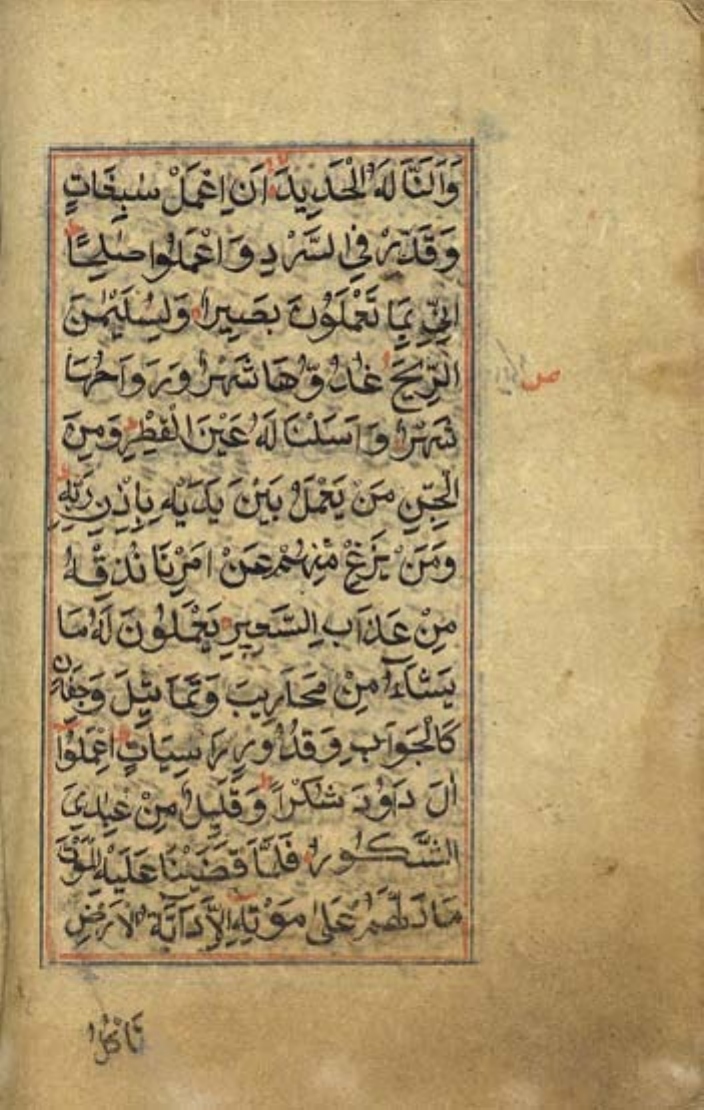 وَاَلَنَّا لَهُ الْحَدِيدَ اَنِ اعْمَلْ سٰبِغَاتٍ
وَقَدِّرْ فِي السَّرْدِ وَاعْمَلُوا صٰلِحًا
اِنِّي بِمَا تَعْمَلُونَ بَصِيرٌ وَلِسُلَيْمٰنَ
الرِّيحَ غُدُوُّهَا شَهْرٌ وَرَوَاحُهَا
شَهْرٌ وَاَسَلْنَا لَهُ عَيْنَ الْقِطْرِ وَمِنَ
الْجِنِّ مَنْ يَعْمَلُ بَيْنَ يَدَيْهِ بِاِذْنِ رَبِّهِ
وَمَنْ يَزِغْ مِنْهُمْ عَنْ اَمْرِنَا نُذِقْهُ
مِنْ عَذَابِ السَّعِيرِ يَعْمَلُونَ لَهُ مَا
يَشَآءُ مِنْ مَحَارِيبَ وَتَمَاثِيلَ وَجِفَانٍ
كَالْجَوَابِ وَقُدُورٍ رَاسِيَاتٍ اِعْمَلُوا
اٰلَ دَاوُدَ شُكْرًا وَقَلِيلٌ مِنْ عِبَادِيَ
الشَّكُورُ فَلَمَّا قَضَيْنَا عَلَيْهِ الْمَوْتَ
مَا دَلَّهُمْ عَلٰى مَوْتِهِ اِلَّا دَآبَّةُ الْاَرْضِ
تَاْكُلُ
ص